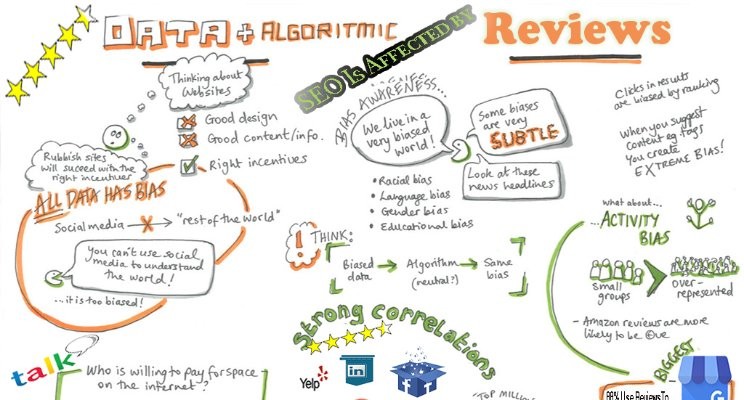 DATA + ALGORITMIC
SEO Is Affected by
Reviews
Thinking about
websites
Good design
Good content/info.
Right incentives
Rubbish sites
will succeed with the
right incentives
ALL DATA HAS BIAS
Social media → "rest of the world"
You can't use social
media to understand
the world!
...it is too biased!
talk
Who is willing to pay for space
on the internet?
BIAS AWARENESS...
We live in a
very biased
world!
Some biases
are very
SUBTLE
Look at these
news headlines
• Racial bias
• Language bias
• Gender bias
• Educational bias
! THINK:
Biased
data
→ Algorithm
(neutral?)
→ Same
bias
Strong correlations
Yelp
in
f t
"TOP MILLIO
Clicks in results
are biased by ranking
When you suggest
content eg tags
You create
EXTREME BIAS!
what about...
...ACTIVITY
BIAS
Small
groups
over-
represented
- Amazon reviews are more
likely to be ⊕ve
BIGGEST
Use Reviews To
G